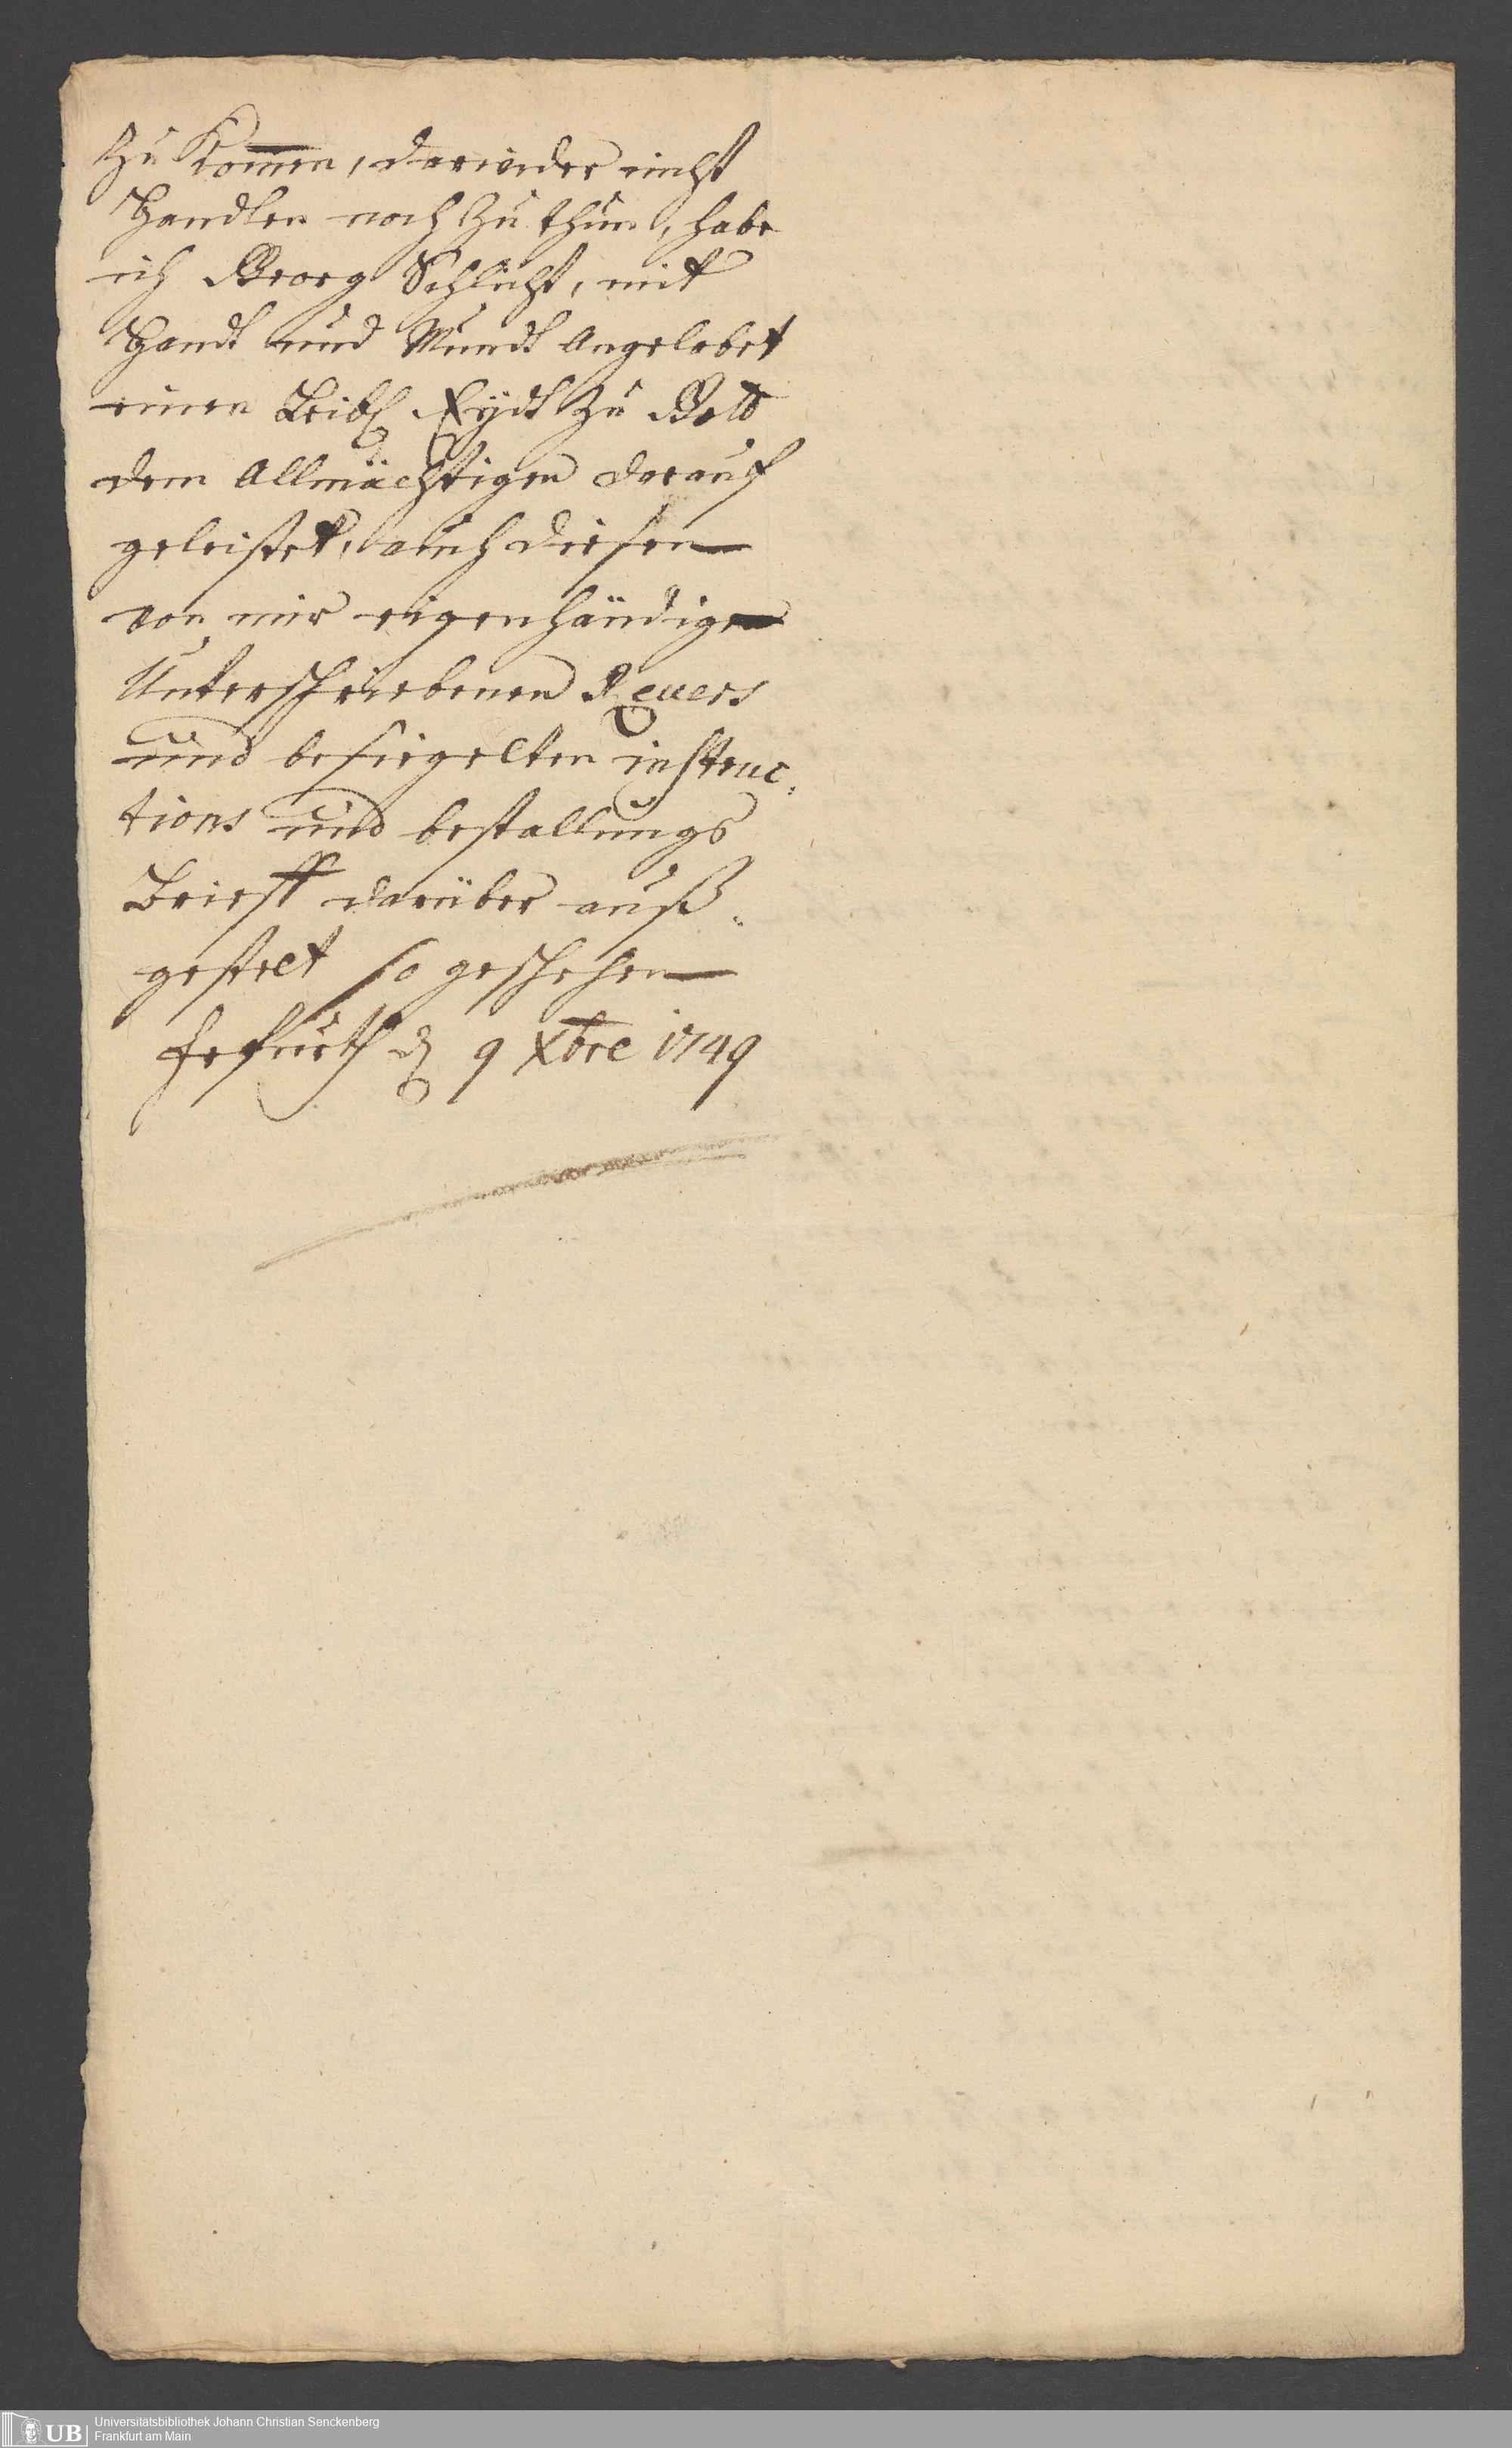 Zu Kom̅en, darwider nicht
Handlen noch Zu thun, habe
ich Georg Schlicht, mit
Handt und Mundt Angelobet
einen Leibl Eydt Zu Gott
dem Allmächtigen darauf
geleistet, auch diesen
von mir eigenhändigen
Unterschriebenen Revers
und besiegelten instruc,
tions und bestallungs
Brieff darüber auß,
gestelt so geschehen
Erfurth d 9 Xbre 1749
Universitätsbibliothek Johann Christian Senckenberg
Frankfurt am Main
UB